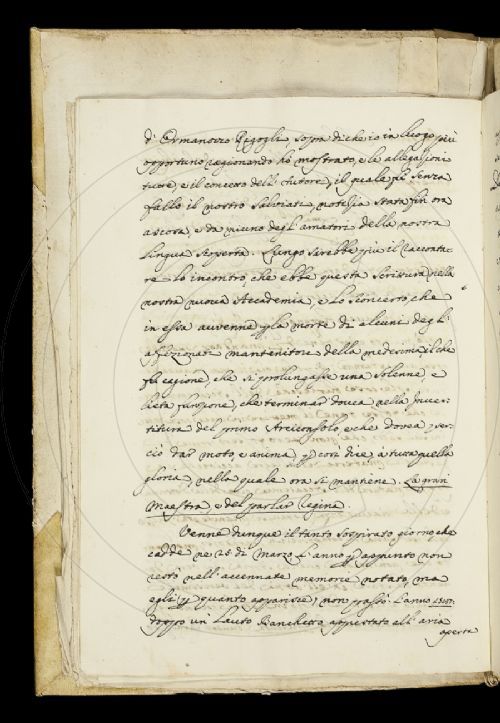 di Ermanozzo Rigogli, sopra di che io in luogo più
opportuno ragionando ho mostrato, e le allegazioni
tutte, e il concetto dell'Autore, il quale fu senza
fallo il nostro Salviati, notizia stata fin ora
ascosa, e da niuno degl'amatori della nostra
lingua scoperta. Lungo sarebbe più il racconta-
re lo incontro, che ebbe questa Scrittura nella
nostra nuova Accademia, e lo sconcerto, che
in essa avvenne p la morte di alcuni degl'
affezionati mantenitori della medesima, il che
fu cagione, che si prolungasse una solenne, e
lieta funzione, che terminar dovea nella inves-
titura del primo Arciconsolo, e che dovea per
ciò dar moto, e anima, p così dire, a tutta quella
gloria, nella quale ora si mantiene. La gran
Maestra, e del parlar Regina.
Venne dunque il tanto sospirato giorno che
cadde ne 25 di Marzo l'anno p appunto non
restò nell'accennate memorie notato, ma
egli p quanto apparisce, non passò l'anno
doppo un lauto Banchetto appestato all'aria
aperta